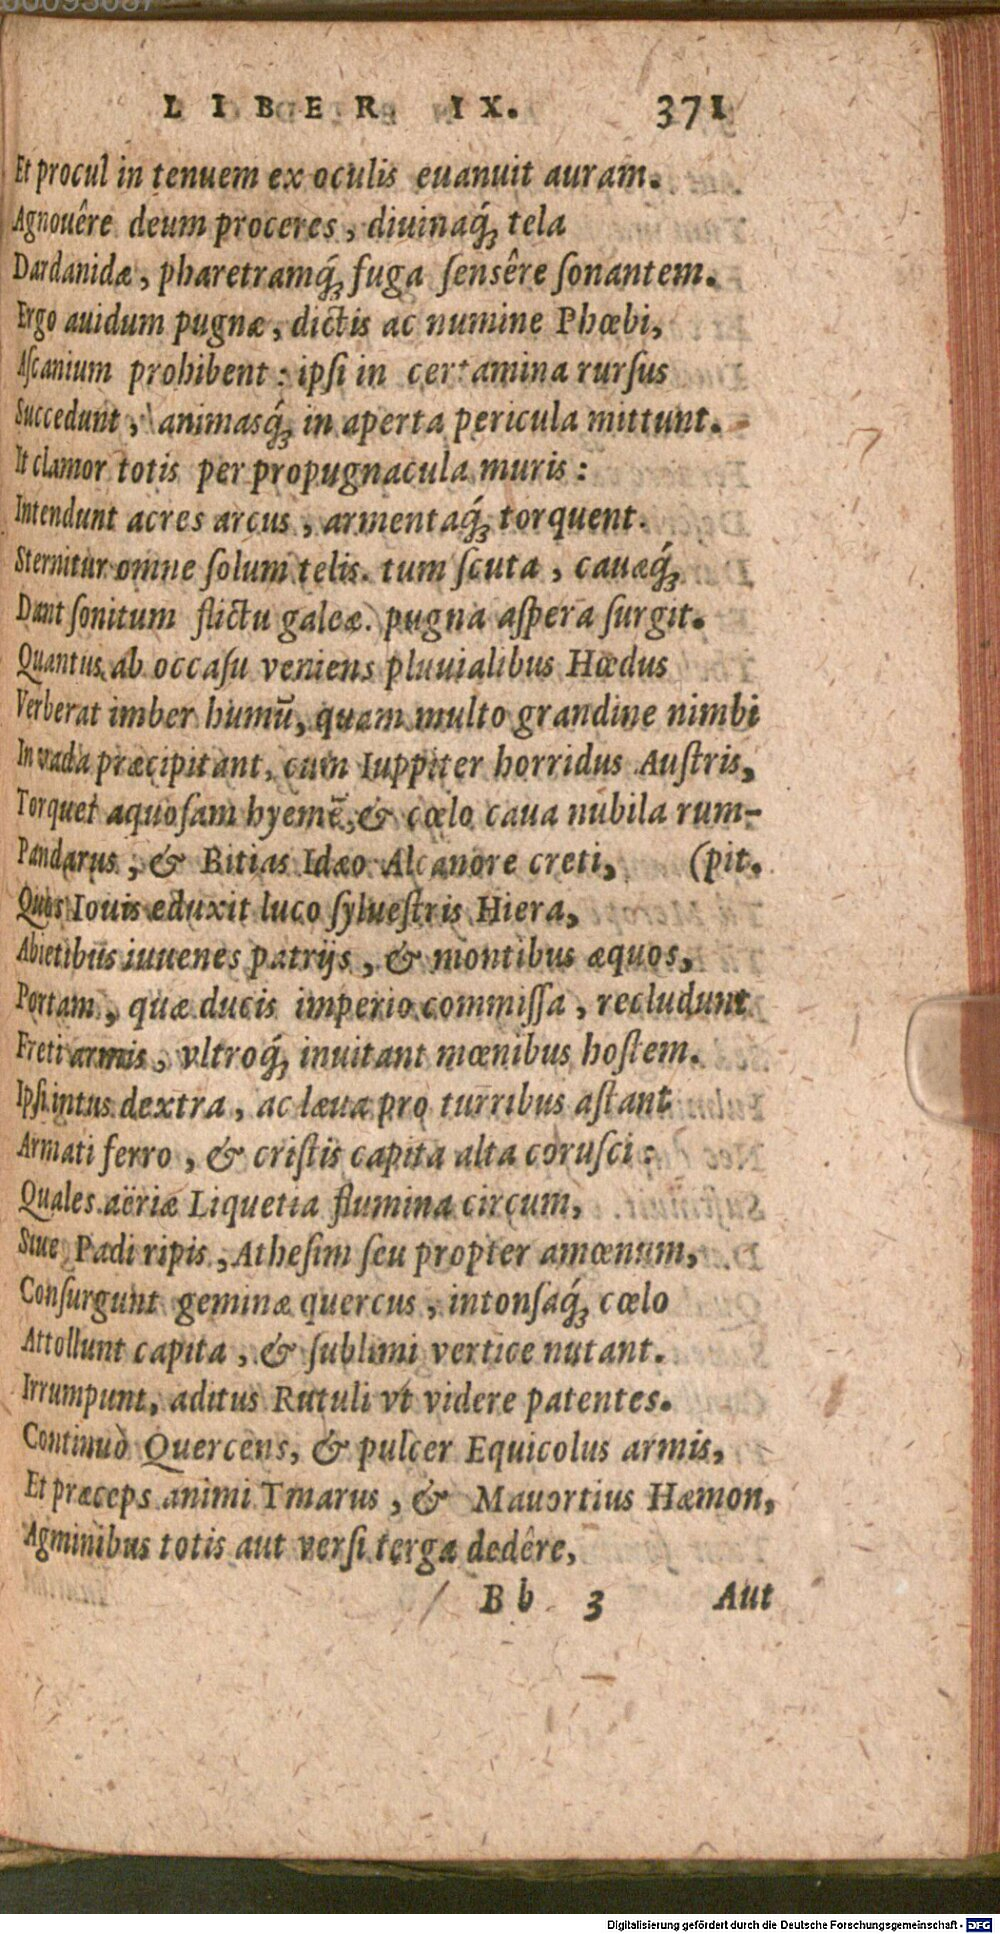 LIBER IX. 371
Et procul in tenuem ex oculis euanuit auram.
Agnouêre deum proceres, diuinaq́; tela
Dardanidæ, pharetramq́; fuga ſensêre ſonantem.
Ergo auidum pugnæ, dictis ac numine Phœbi,
Aſcanium prohibent: ipſi in certamina rurſus
Succedunt, animasq́; in aperta pericula mittunt.
It clamor totis per propugnacula muris:
Intendunt acres arcus, armentaq́; torquent.
Sternitur omne ſolum telis. tum ſcuta, cauæq́;
Dant ſonitum flictu galeæ. pugna aſpera ſurgit.
Quantus ab occaſu veniens pluuialibus Hœdus
Verberat imber humū, quam multo grandine nimbi
In vada præcipitant, cum Iuppiter horridus Auſtris,
Torquet aquoſam hyemē, & cœlo caua nubila rum-
Pandarus, & Bitias Idæo Alcanore creti, (pit.
Quos Iouis eduxit luco ſylueſtris Hiera,
Abietibus iuuenes patrijs, & montibus æquos,
Portam, quæ ducis imperio commiſſa, recludunt
Freti armis, vltroq́; inuitant mœnibus hoſtem.
Ipſi intus dextra, ac læua pro turribus aſtant
Armati ferro, & criſtis capita alta coruſci:
Quales aëriæ Liquetia flumina circum,
Siue Padi ripis, Atheſim ſeu propter amœnum,
Conſurgunt geminæ quercus, intonſaq́; cœlo
Attollunt capita, & ſublimi vertice nutant.
Irrumpunt, aditus Rutuli vt videre patentes.
Continuò Quercens, & pulcer Equicolus armis,
Et præceps animi Tmarus, & Mauortius Hæmon,
Agminibus totis aut verſi terga dedêre,
Bb 3 Aut
Digitalisierung gefördert durch die Deutsche Forschungsgemeinschaft - DFG